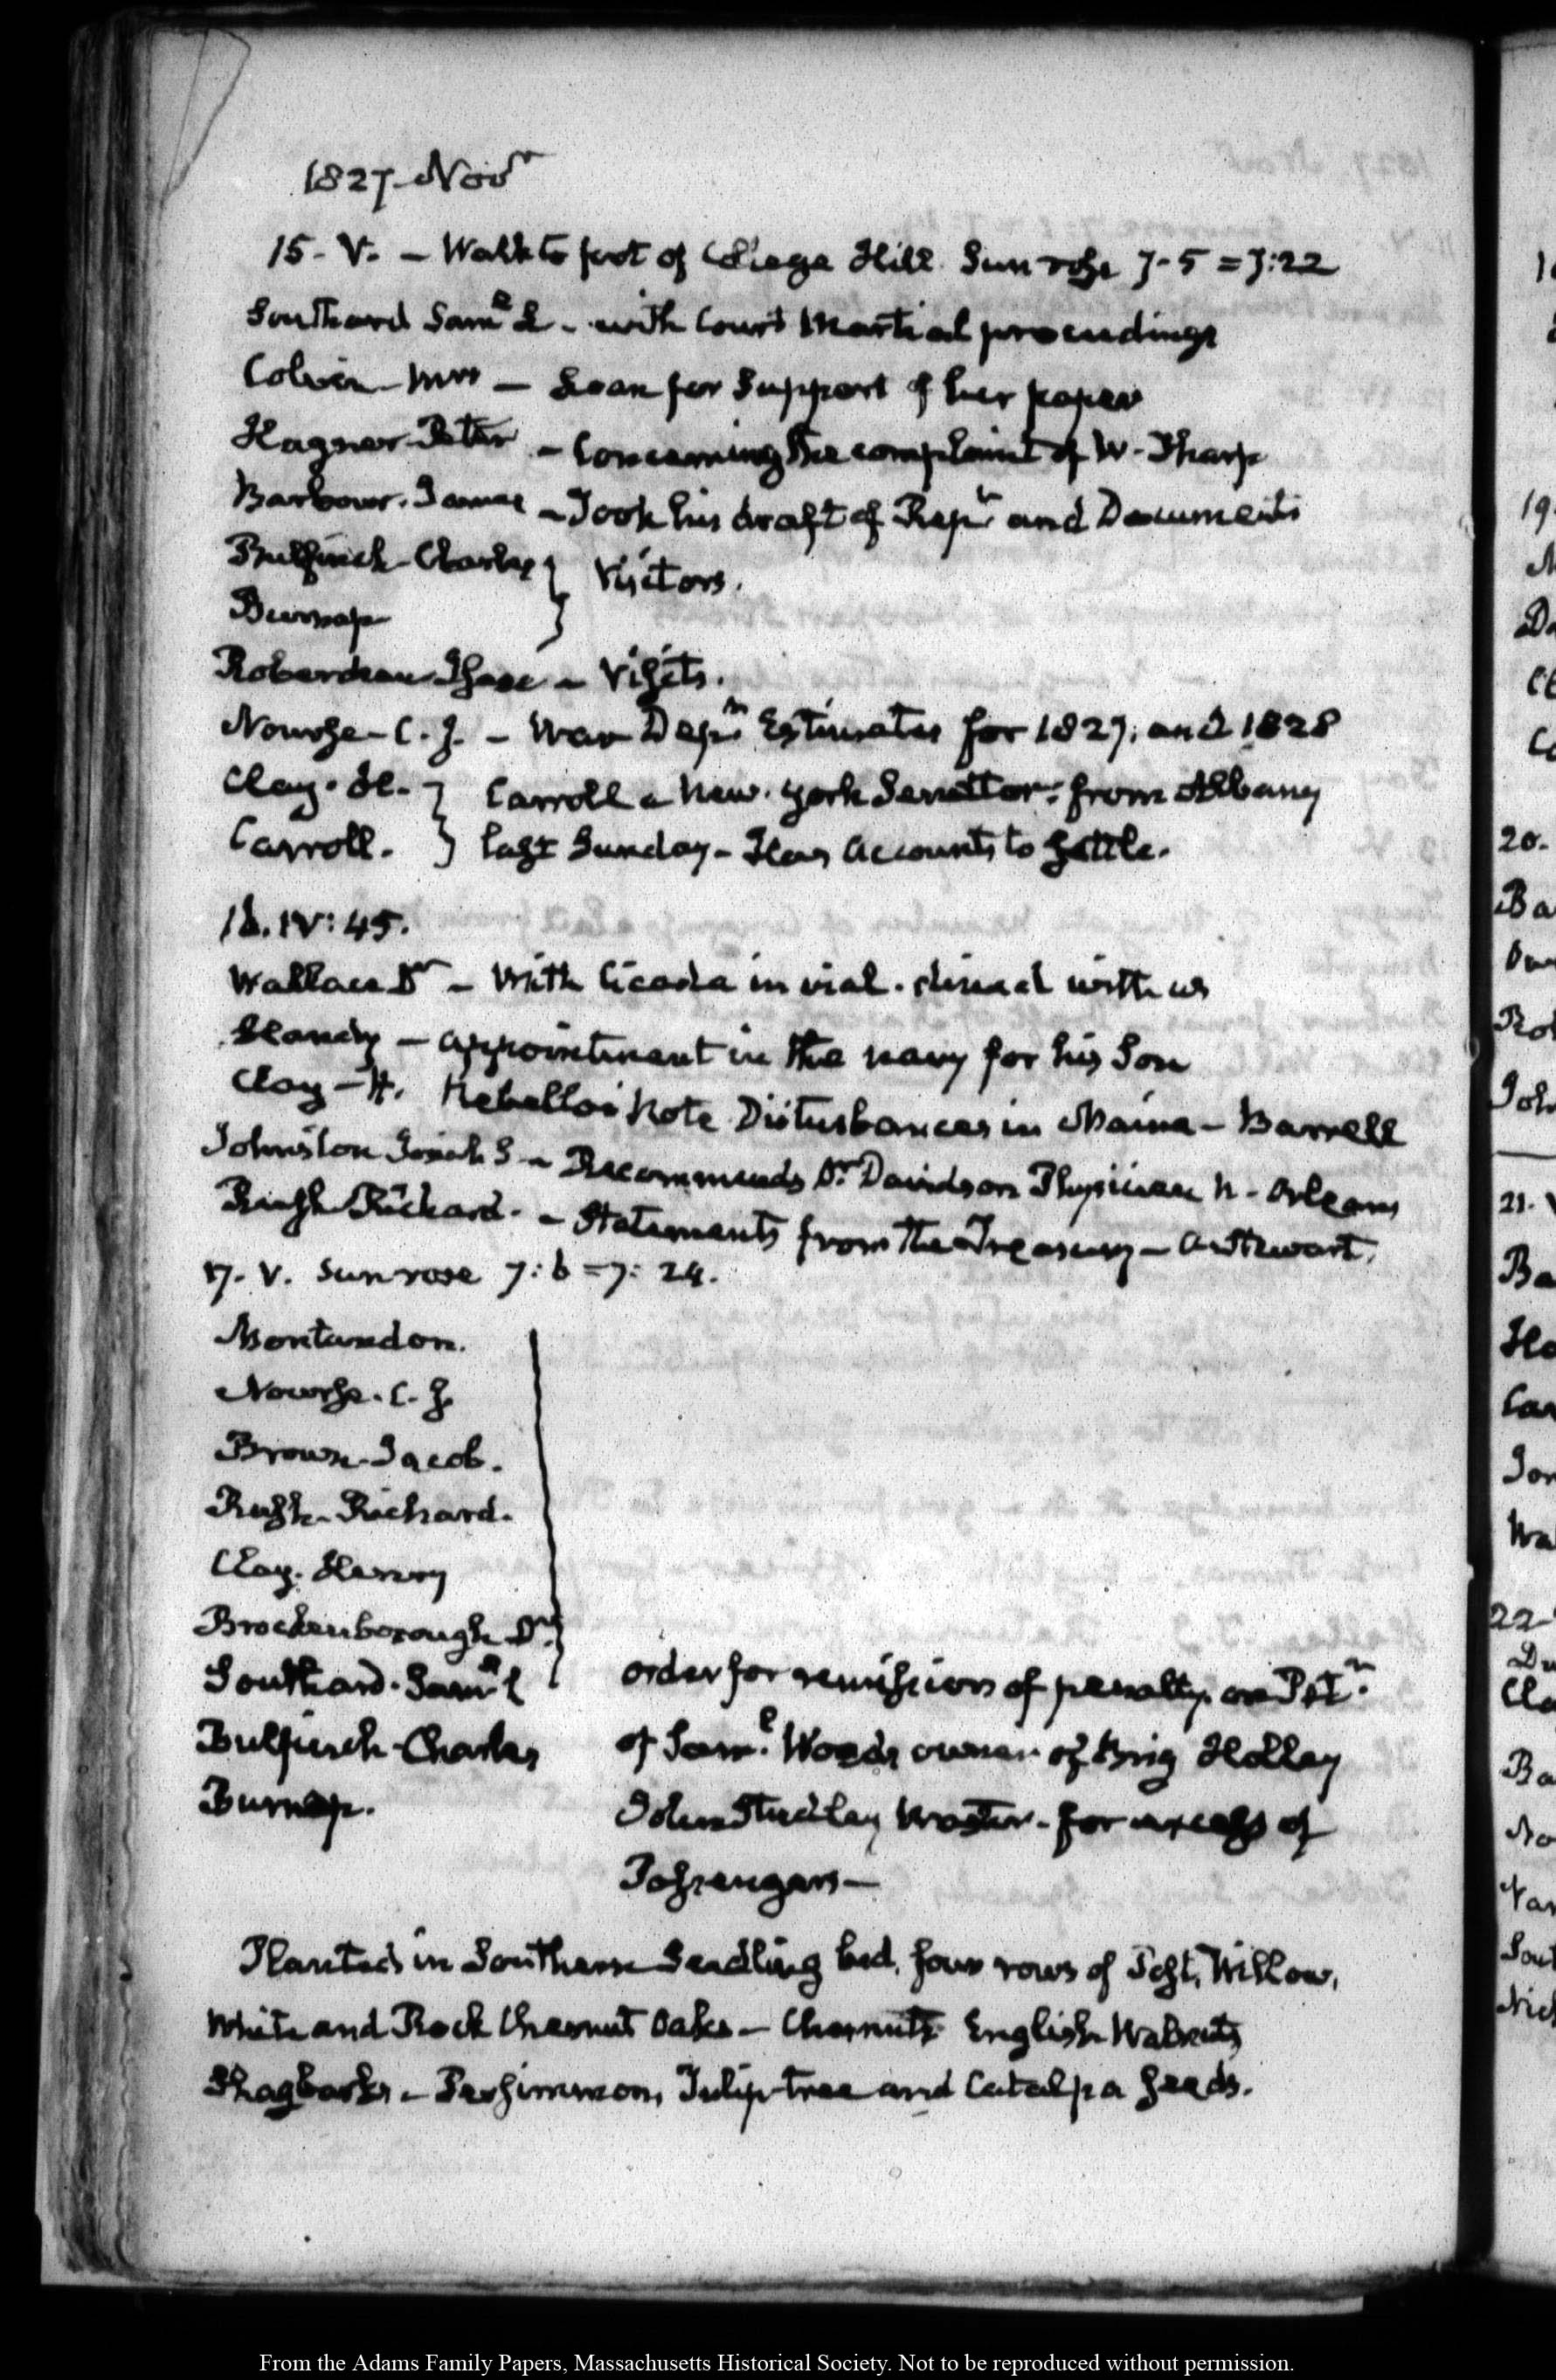 1827 Novr
15. V. – Walk to foot of College Hill. Sun rose 7-5 = 7:22
Southard Saml L – with Court Martial proceedings
Colvin Mrs – Loan for Support of her paper
Hagner Peter – Concerning the complaint of W. Tharp
Barbour. James – Took his draft of Rept and Documents
Bulfinch – Charles } Visitors.
Burnap }
Roberdeau Isaac – Visits.
Nourse – C. J. – War Dept Estimates for 1827, and 1828
Clay. H. } Carroll a New. York Senator. from Albany
Carroll. } last Sunday – Has Accounts to settle.
16. IV: 45.
Wallace Dr – With Cicada in vial. dined with us
Handy – appointment in the navy for his Son
Clay – H. Rebello's Note Disturbances in Maine – Barrell
Johnston Josiah S – Recommends Dr Davidson Physician N. Orleans
Rush Richard. – Statements from the Treasury – A. Stewart.
17. V. Sun rose 7:6 = 7: 24.
Montandon.
Nourse. C. J.
Brown – Jacob.
Rush – Richard.
Clay. Henry
Brockenborough Dr
Southard. Saml L order for remission of penalty on Petn
Bulfinch – Charles of Saml Woods owner of Brig Holley
Burnap. John Studley Master – for excess of
Passengers –
Planted in Southern Seedling bed, four rows of Post, Willow,
White and Rock Chesnut Oaks – Chesnuts English Walnuts
Shagbarks – Persimmon, Tulip-tree and Catalpa seeds.
From the Adams Family Papers, Massachusetts Historical Society. Not to be reproduced without permission.